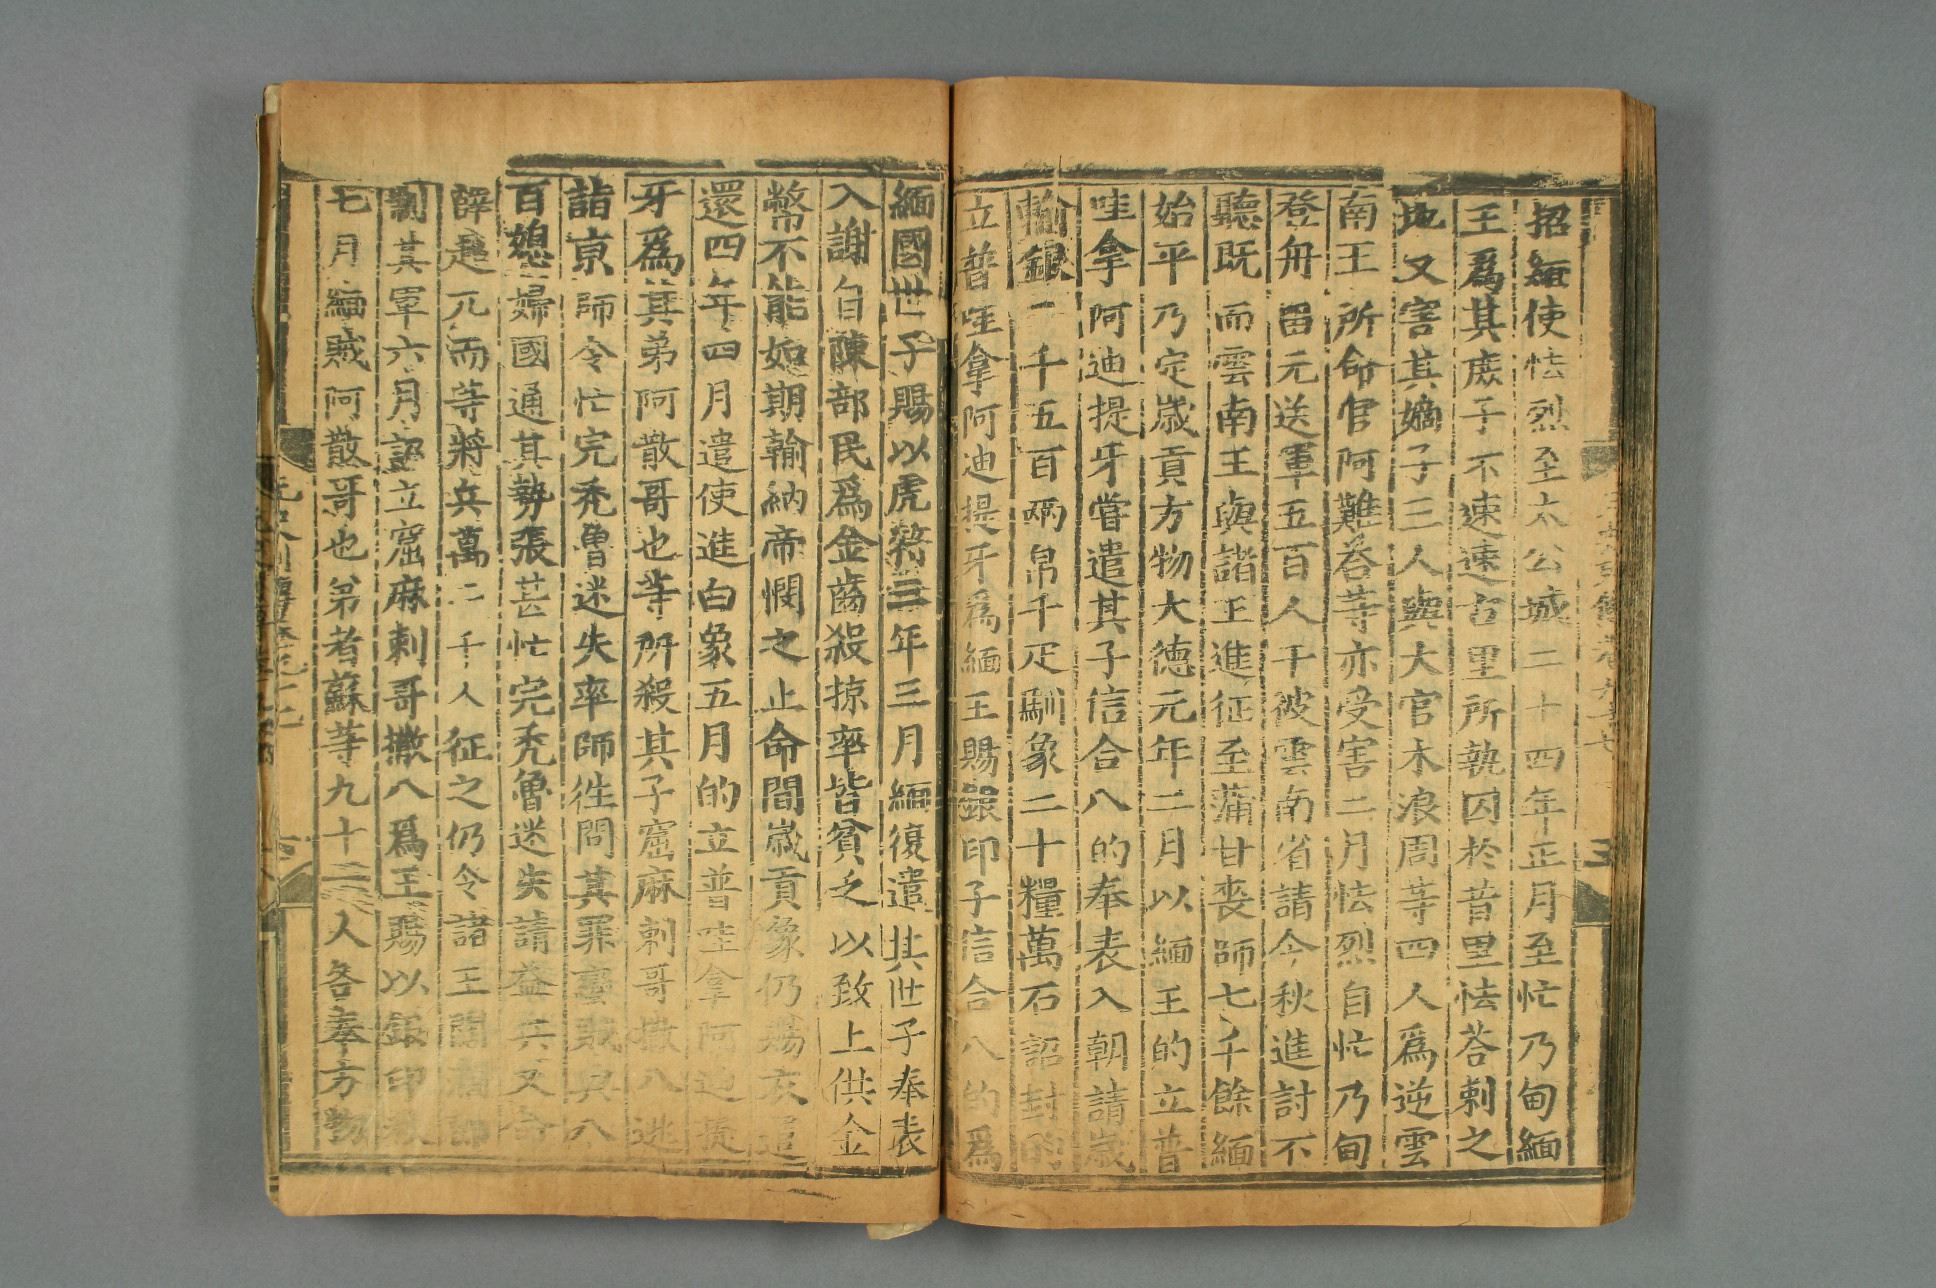 招緬使怯烈至太公城二十四年正月至忙乃甸緬
王爲其庶子不速速古里所執囚於昔里怯荅剌之
地又害其嫡子三人與大官木浪周等四人爲逆雲
南王所命官阿難荅等亦受害二月怯烈自忙乃甸
登舟留元送軍五百人于彼雲南省請今秋進討不
聽既而雲南王與諸王進征至蒲甘喪師七千餘緬
始平乃定歲貢方物大德元年二月以緬王的立普
哇拿阿迪提牙嘗遣其子信合八的奉表入朝請歲
輸銀二千五百兩帛千疋馴象二十糧萬石詔封的
立普哇拿阿迪提牙爲緬王賜銀印子信合八的爲
緬國世子賜以虎符三年三月緬復遣其世子奉表
入謝自陳部民爲金齒殺掠率皆貧乏以致上供金
幣不能如期輸納帝憫之止命間歲貢象仍賜衣遣
還四年四月遣使進白象五月的立普哇拿阿迪提
牙爲其弟阿散哥也等所殺其子窟麻剌哥撒八逃
詣京師令忙完禿魯迷失率師往問其罪蠻賊與八
百媳婦國通其勢張甚忙完禿魯迷失請益兵又命
薛超兀而等將兵萬二千人征之仍令諸王闊闊節
制其軍六月詔立窟麻剌哥撒八爲王賜以銀印秋
七月緬賊阿散哥也弟者蘇等九十二人各奉方物